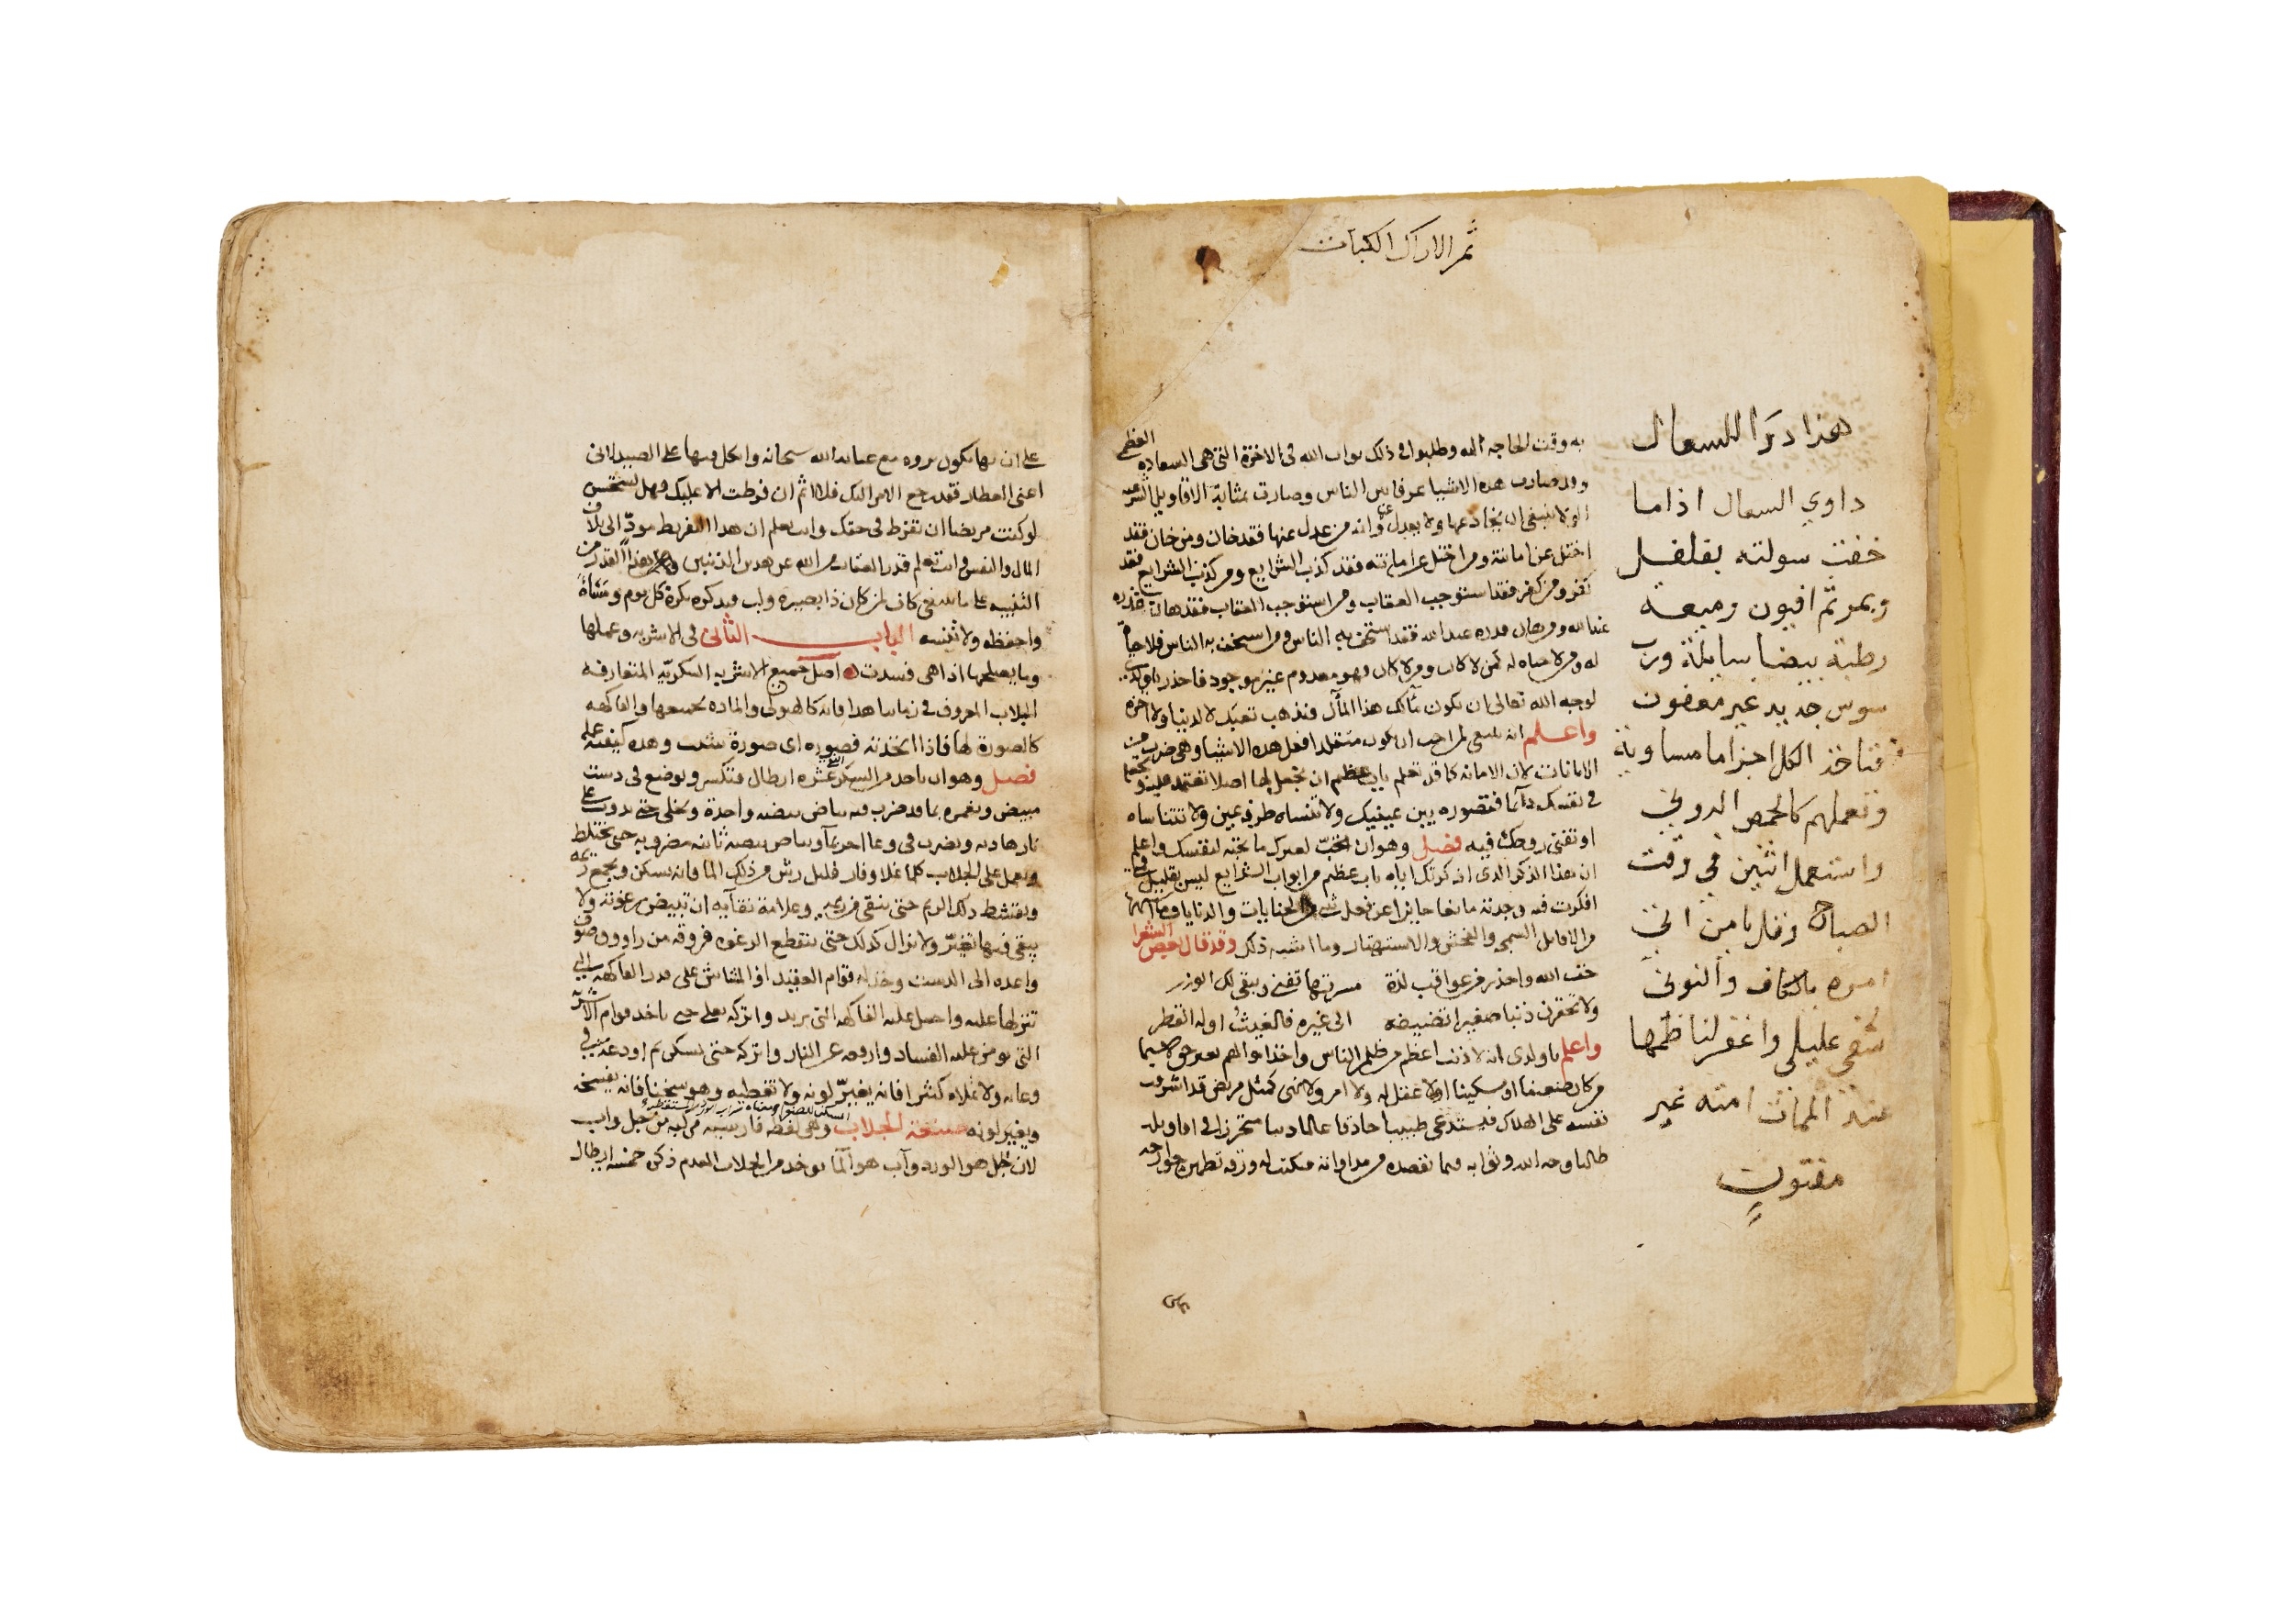 ثمر الاراك الكباث
هذا دوا للسعال
داوي السعال اذا ما
خفت سولته بفلفل
وبمر ثم افيون وميعة
رطبة بيضا سايلة ورب
سوس جديد غير معفون
فتاخذ الكل اجزا مساوية
وتعملهم كالحمص
واستعمل اثنين في وقت
الصباح وقل يا من
امره بالكاف والنون
شفي عليلي واغفر لناظمها
عند الممات امته غير
مفتون
به وقت الحاجه اليه وطلبوا في ذلك ثواب الله في الاخرة التي هي السعاده العظمى
وقد صارت هذه الاشيا عرفا بين الناس وصارت بمثابة الاقاويل الشرعيه
ولا يعدل وانه من عدل عنها فقد خان ومن خان فقد
اختل عن امانته ومن اختل عن امانته فقد كذب الشرايع ومن كذب الشرايع فقد
كفر ومن كفر فقد استوجب العقاب ومن استوجب العقاب فقد هان قدره
عند الله ومن هان قدره عند الله فقد استخف به الناس ومن استخف به الناس فلا حياة
له ومن لا حياه له كمن لا كان ومن لا كان فهو معدوم غير موجود فاحذر يا ولدي
لوجه الله تعالى ان يكون مآلك هذا المآل فتذهب تعبك لا لدنيا ولا اخرة
واعلم انه ينبغي لمن احب ان يكون متقلدا فعل هذه الاشيا وهي ضرب من
الامانات لان الامانه كما قد تعلم باب عظيم ان يجعل لها اصلا تعتمد عليه
في نفسك دآئما فتصوره بين عينيك ولا تنساه طرفة عين ولا تتناساه
او تفنى روحك فيه فصل وهو ان تحب لغيرك ما تحبه لنفسك واعلم
ان هذا الذكر الذي اذكرتك اياه باب عظيم من ابواب الشرايع ليس بقليل
افكرت فيه وجدته مانعا حاجزا عن فعل الجنايات والدنايا
من الاقاويل السمجه والفحش والاستهتار وما اشبه ذلك وقد قال بعض الشعرا
خف الله واحذر من عواقب لذة مسرتها تفنى ويبقى لك الوزر
ولا تحقرن ذنبا صغيرا تضيفه الى غيره فالغيث اوله القطر
واعلم يا ولدي انه لا ذنب اعظم من ظلم الناس واخذ اموالهم بغير حق لا سيما
من كان ضعيفا او مسكينا اولا عقل له ولا امر ولا نهي كمثل مريض قد اشرف
نفسه على الهلاك فيستدعي طبيبا حاذقا عالما دينا متحرزا في اقاويله
طالبا وجه الله وثوابه فيما يقصده من مداواته فيكتب له ورقه تطهر جوارحه
على ان بها يكون بروه مع عناية الله سبحانه واتكل فيها على الصيدلاني
اعني العطار فقد رجع الامر اليك فلا اثم ان فرطت الا عليك وهل تستحسن
لو كنت مريضا ان تفرط في حقك وانت تعلم ان هذا التفريط مودّ الى تلاف
المال والنفس وانت تعلم قدر العقاب من الله عن هذين الذنبين القدر من
التنبيه على ما ينبغي كاف لمن كان ذا بصيره ولب فيدكره بكرة كل يوم ومسآء
واحفظه ولا تنسه الباب الثاني في الاشربه وعملها
وما يصلحها اذا هي فسدت اصل جميع الاشربه السكريّه المتعارفه
الجلاب المعروف في زماننا هذا فانه كالهيولى والماده لجميعها والفاكهه
كالصورة لها فاذا اتخذته فصوره اى صورة شئت وهذه كيفية عمله
فصل وهو ان ياخذ من السكر عشره ارطال فتكسر ويوضع في دست
مبيض ويغمره بما قد ضرب فيه بياض بيضه واحدة ويخلى حتى يذوب على
نار هاديه ويضرب في وعا اخر مآ وبياض بيضه ثانيه مضروبه حتى يختلط
ويعمل على الجلاب كلما غلا وفار قليل رش من ذلك المآ فانه يسكن ويجمع ريمه
ويقتشط ذلك الريم حتى ينقى من ريمه وعلامة نقآيه ان تبيض رغوته ولا
يبقى فيها تغيّر ولا يزال كذلك حتى تنقطع الرغوه فروقه من راووق صوف
واعده الى الدست وخذ له قوام العقيد
تنزلها عليه واحمل عليه الفاكهه التي تريد واتركه يغلي حتى ياخذ قوام الاشربه
التي يومن عليه الفساد وارفعه عن النار واتركه حتى يسكن ثم اودعه في
وعايه ولا تملاه كثيرا فانه يغيّر لونه ولا تغطيه وهو سخنا فانه يفسخه
ويغير لونه صنعة الجلاب وهي لفظه فارسيه مركبه من جل واب
لان جل هو الورد وآب هو المآ يوخذ من الجلاب المقدم ذكره خمسة ارطال